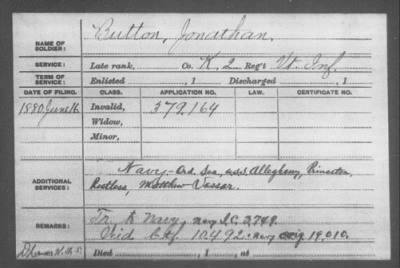 NAME OF SOLDIER: Button, Jonathan.
SERVICE: Late rank, Co. K, 2 Reg't Vt. Inf.
TERM OF SERVICE: Enlisted , 1 Discharged , 1
DATE OF FILING. CLASS. APPLICATION NO. LAW. CERTIFICATE NO.
1880 June 16 Invalid, 379.164
Widow,
Minor,
ADDITIONAL SERVICES: Navy - Ord. Sea, U.S.S. Allegheny, Princeton,
Restless, Matthew Vassar.
REMARKS: Tr. to Navy Navy I.C. 2749.
Died Ctf. 10492 Navy Orig 19,010.
Died , 1 , at